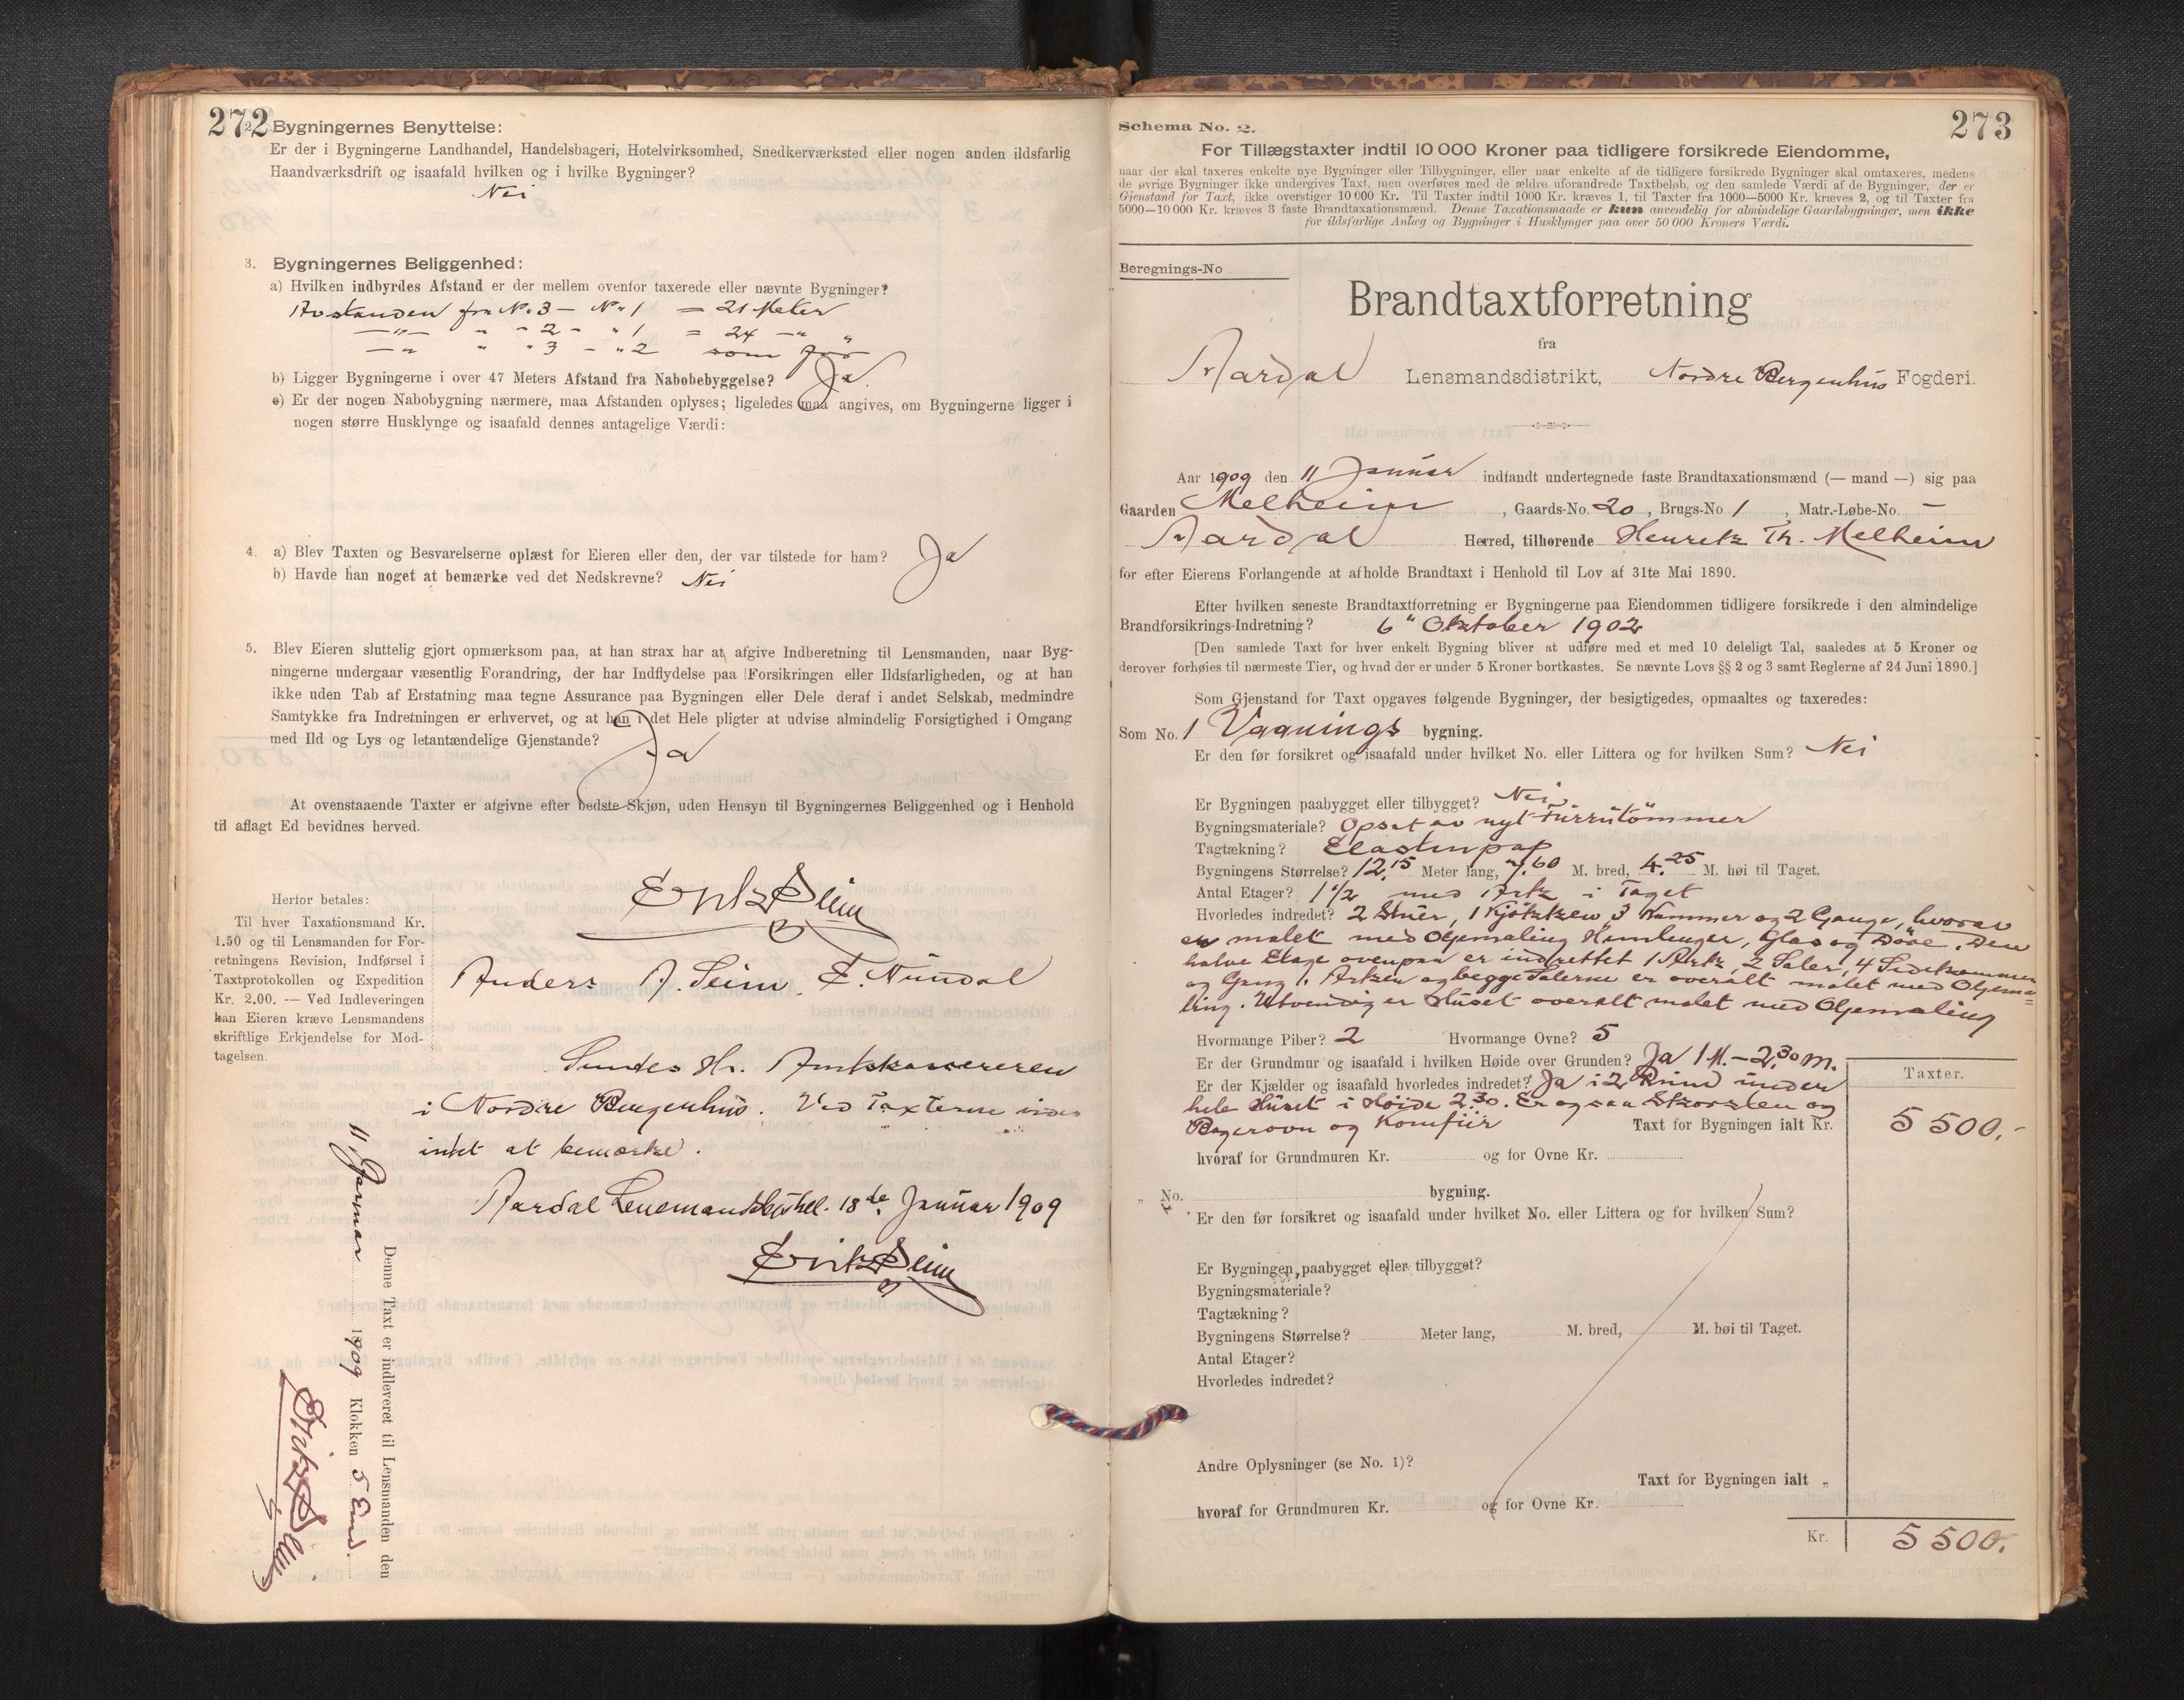 272
2. Bygningernes Benyttelse:
Er der i Bygningerne Landhandel, Handelsbageri, Hotelvirksomhed, Snedkerværksted eller nogen anden ildsfarlig
Haandværksdrift og isaafald hvilken og i hvilke Bygninger?
Nei
3. Bygningernes Beliggenhed:
a) Hvilken indbyrdes Afstand er der mellem ovenfor taxerede eller nævnte Bygninger?
Avstanden fra No 3 – No 1 = 21 Meter
—"— " " 2 – " 1 = 24 —"— "
—"— " " 3 – " 2 som før
b) Ligger Bygningerne i over 47 Meters Afstand fra Nabobebyggelse? Ja.
c) Er der nogen Nabobygning nærmere, maa Afstanden oplyses; ligeledes maa angives, om Bygningerne ligger i
nogen større Husklynge og isaafald dennes antagelige Værdi:
4. a) Blev Taxten og Besvarelserne oplæst for Eieren eller den, der var tilstede for ham? Ja
b) Havde han noget at bemærke ved det Nedskrevne? Nei
5. Blev Eieren sluttelig gjort opmærksom paa, at han strax har at afgive Indberetning til Lensmanden, naar Byg-
ningerne undergaar væsentlig Forandring, der har Indflydelse paa Forsikringen eller Ildsfarligheden, og at han
ikke uden Tab af Erstatning maa tegne Assurance paa Bygningen eller Dele deraf i andet Selskab, medmindre
Samtykke fra Indretningen er erhvervet, og at han i det Hele pligter at udvise almindelig Forsigtighed i Omgang
med Ild og Lys og letantændelige Gjenstande? Ja
At ovenstaaende Taxter er afgivne efter bedste Skjøn, uden Hensyn til Bygningernes Beliggenhed og i Henhold
til aflagt Ed bevidnes herved.
Erik Seim
Anders A. Seim. E. Nundal
Herfor betales:
Til hver Taxationsmand Kr.
1.50 og til Lensmanden for For-
retningens Revision, Indførsel i
Taxtprotokollen og Expedition
Kr. 2.00. — Ved Indleveringen
kan Eieren kræve Lensmandens
skriftlige Erkjendelse for Mod-
tagelsen.
Sendes Hr. Amtskassereren
i Nordre Bergenhus. Ved Taxterne vides
intet at bemærke.
Aardal Lensmandsbestil. 18de Januar 1909
Erik Seim
Denne Taxt er indleveret til Lensmanden den
11 Januar 1909 Klokken 5 Emd.
Erik Seim
273
Schema No. 2.
For Tillægstaxter indtil 10 000 Kroner paa tidligere forsikrede Eiendomme,
naar der skal taxeres enkelte nye Bygninger eller Tilbygninger, eller naar enkelte af de tidligere forsikrede Bygninger skal omtaxeres, medens
de øvrige Bygninger ikke undergives Taxt, men overføres med de ældre uforandrede Taxtbeløb, og den samlede Værdi af de Bygninger, der er
Gjenstand for Taxt, ikke overstiger 10 000 Kr. Til Taxter indtil 1000 Kr. kræves 1, til Taxter fra 1000—5000 Kr. kræves 2, og til Taxter fra
5000—10 000 Kr. kræves 3 faste Brandtaxationsmænd. Denne Taxationsmaade er kun anvendelig for almindelige Gaardsbygninger, men ikke
for ildsfarlige Anlæg og Bygninger i Husklynger paa over 50 000 Kroners Værdi.
Beregnings-No
Brandtaxtforretning
fra
Aardal Lensmandsdistrikt, Nordre Bergenhus Fogderi.
Aar 1909 den 11 Januar indfandt undertegnede faste Brandtaxationsmænd (— mand —) sig paa
Gaarden Melheim, Gaards-No. 20, Brugs-No. 1, Matr.-Løbe-No. –
Aardal Herred, tilhørende Henrik Th. Melheim
for efter Eierens Forlangende at afholde Brandtaxt i Henhold til Lov af 31te Mai 1890.
Efter hvilken seneste Brandtaxtforretning er Bygningerne paa Eiendommen tidligere forsikrede i den almindelige
Brandforsikrings-Indretning? 6" Oktober 1902
[Den samlede Taxt for hver enkelt Bygning bliver at udføre med et med 10 deleligt Tal, saaledes at 5 Kroner og
derover forhøies til nærmeste Tier, og hvad der er under 5 Kroner bortkastes. Se nævnte Lovs §§ 2 og 3 samt Reglerne af 24 Juni 1890.]
Som Gjenstand for Taxt opgaves følgende Bygninger, der besigtigedes, opmaaltes og taxeredes:
Som No. 1 Vaanings bygning.
Er den før forsikret og isaafald under hvilket No. eller Littera og for hvilken Sum? Nei
Er Bygningen paabygget eller tilbygget? Nei
Bygningsmateriale? Opsat av nyt Furrutømmer
Tagtækning? Elastinpap
Bygningens Størrelse? 12,15 Meter lang, 7,60 M. bred, 4.25 M. høi til Taget.
Antal Etager? 1 1/2 med Ark i Taget
Hvorledes indredet? 2 Stuer, 1 Kjøkken 3 Kammer og 2 Gange, hvorav
er malet med Oljemaling Himlinger, Glas og Døre. Den
halve Etage ovenpaa er indrettet 1 Ark, 2 Saler, 4 Sidekammer
og Gang. Arken og begge Salerne er overalt malet med Oljema=
ling. Utvendig er Huset overalt malet med Oljemaling
Hvormange Piber? 2 Hvormange Ovne? 5
Er der Grundmur og isaafald i hvilken Høide over Grunden? Ja 1 M. – 2,30 m.
Er der Kjælder og isaafald hvorledes indredet? Ja i 2 Rum under
hele Huset i Høide 2.30. Er ogsaa Skorsten og
Bagerovn og Komfur Taxt for Bygningen ialt Kr.
Taxter.
5 500.-
hvoraf for Grundmuren Kr. og for Ovne Kr.
" No. bygning.
Er den før forsikret og isaafald under hvilket No. eller Littera og for hvilken Sum?
Er Bygningen paabygget eller tilbygget?
Bygningsmateriale?
Tagtækning?
Bygningens Størrelse? Meter lang, M. bred, M. høi til Taget.
Antal Etager?
Hvorledes indredet?
Andre Oplysninger (se No. 1)?
Taxt for Bygningen ialt „
hvoraf for Grundmuren Kr. og for Ovne Kr.
Kr. 5 500.